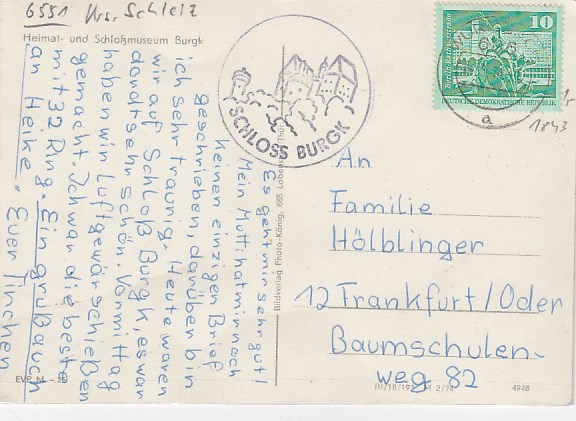 6551 Krs. Schleiz
Heimat- und Schloßmuseum Burgk
Es geht mir sehr gut!
Mein Mutti hat mir noch
keinen einzigen Brief
geschrieben, darüber bin
ich sehr traurig. Heute waren
wir auf Schloß Burgk, es war
dort sehr schön. Vormittag
haben wir Luftgewärschießen
gemacht. Ich war die beste
mit 32 Ring. Ein gruß auch
an Heike. Euer Tinchen
EVP M -,20
Bildverlag Photo-König, 685 Lobenst. Thür.
SCHLOSS BURGK
10
DEUTSCHE DEMOKRATISCHE REPUBLIK
a
1843
An
Familie
Hölblinger
12 Frankfurt/Oder
Baumschulen-
weg 82
4948